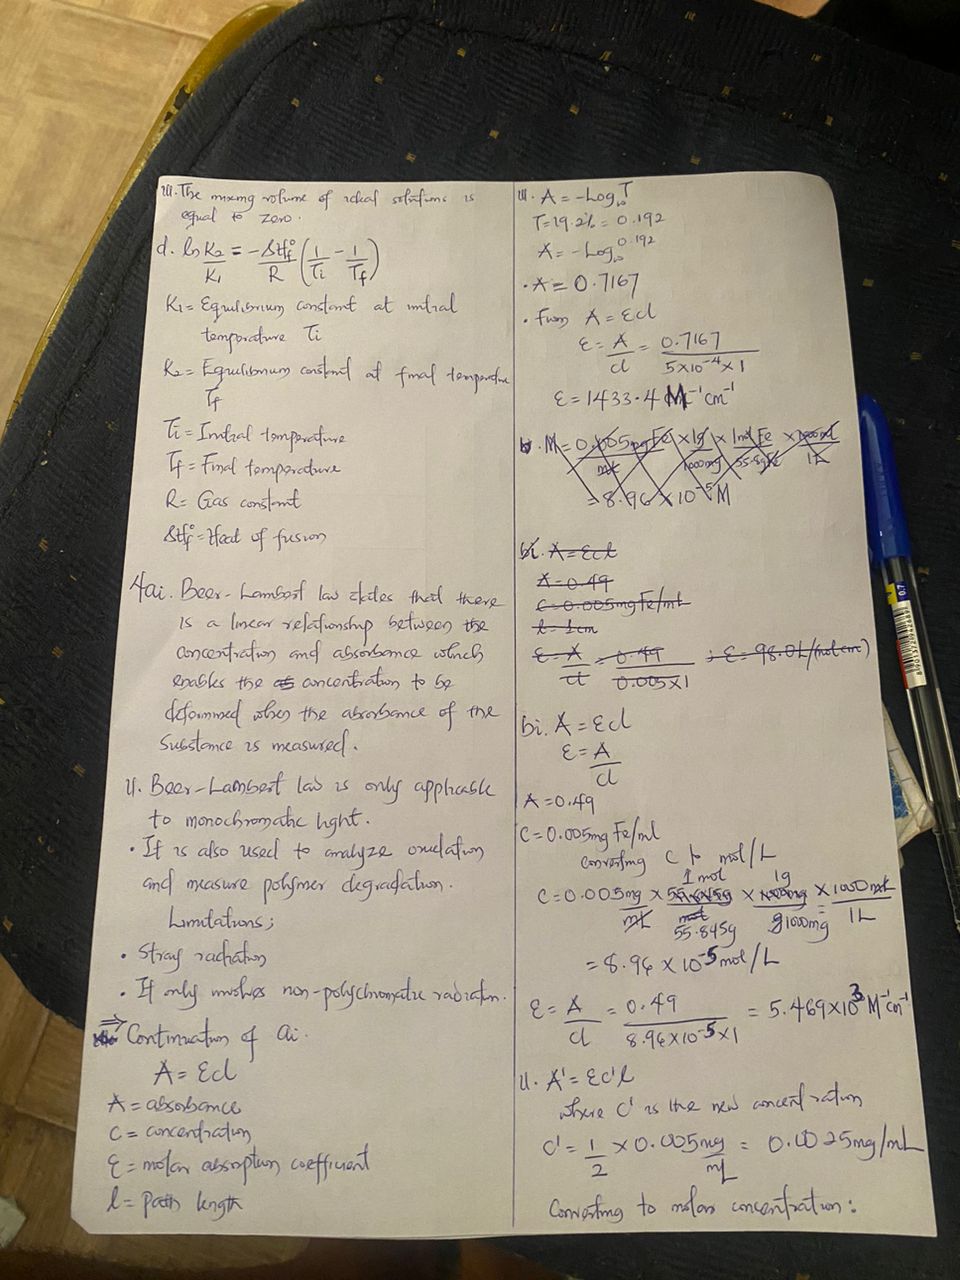 iii. The mixing volume of ideal solutions is
equal to zero.
d. ln K₂/K₁ = -ΔHf°/R (1/Ti - 1/Tf)
K₁ = Equilibrium constant at initial
temperature Ti
K₂ = Equilibrium constant at final temperature
Tf
Ti = Initial temperature
Tf = Final temperature
R = Gas constant
ΔHf° = Heat of fusion
4ai. Beer-Lambert law states that there
is a linear relationship between the
concentration and absorbance which
enables the concentration to be
determined when the absorbance of the
substance is measured.
ii. Beer-Lambert law is only applicable
to monochromatic light.
• It is also used to analyze oxidation
and measure polymer degradation.
Limitations;
• Stray radiation
• It only involves non-polychromatic radiation.
⇒ Continuation of ai.
A = εcl
A = absorbance
C = concentration
ε = molar absorption coefficient
l = path length
iii. A = -Log₁₀T
T = 19.2% = 0.192
A = -Log₁₀0.192
• A = 0.7167
• From A = εcl
ε = A/cl = 0.7167/5×10⁻⁴×1
ε = 1433.4 M⁻¹cm⁻¹
b. M = 0.005mg Fe/mL × 1g/1000mg × 1mol Fe/55.8g × 1000mL/1L
= 8.96 × 10⁻⁵M
bi. A = εcl
A = 0.49
C = 0.005mg Fe/mL
l = 1cm
ε = A/cl = 0.49/0.005×1 ; ε = 98.0L/(mol cm)
bi. A = εcl
ε = A/cl
A = 0.49
C = 0.005mg Fe/ml
converting C to mol/L
C = 0.005mg/mL × 1 mol/55.845g × 1g/1000mg × 1000mL/1L
= 8.96 × 10⁻⁵ mol/L
ε = A/cl = 0.49/8.96×10⁻⁵×1 = 5.469×10³ M⁻¹cm⁻¹
ii. A' = εc'l
where C' is the new concentration
C' = 1/2 × 0.005mg/mL = 0.0025mg/mL
Converting to molar concentration: